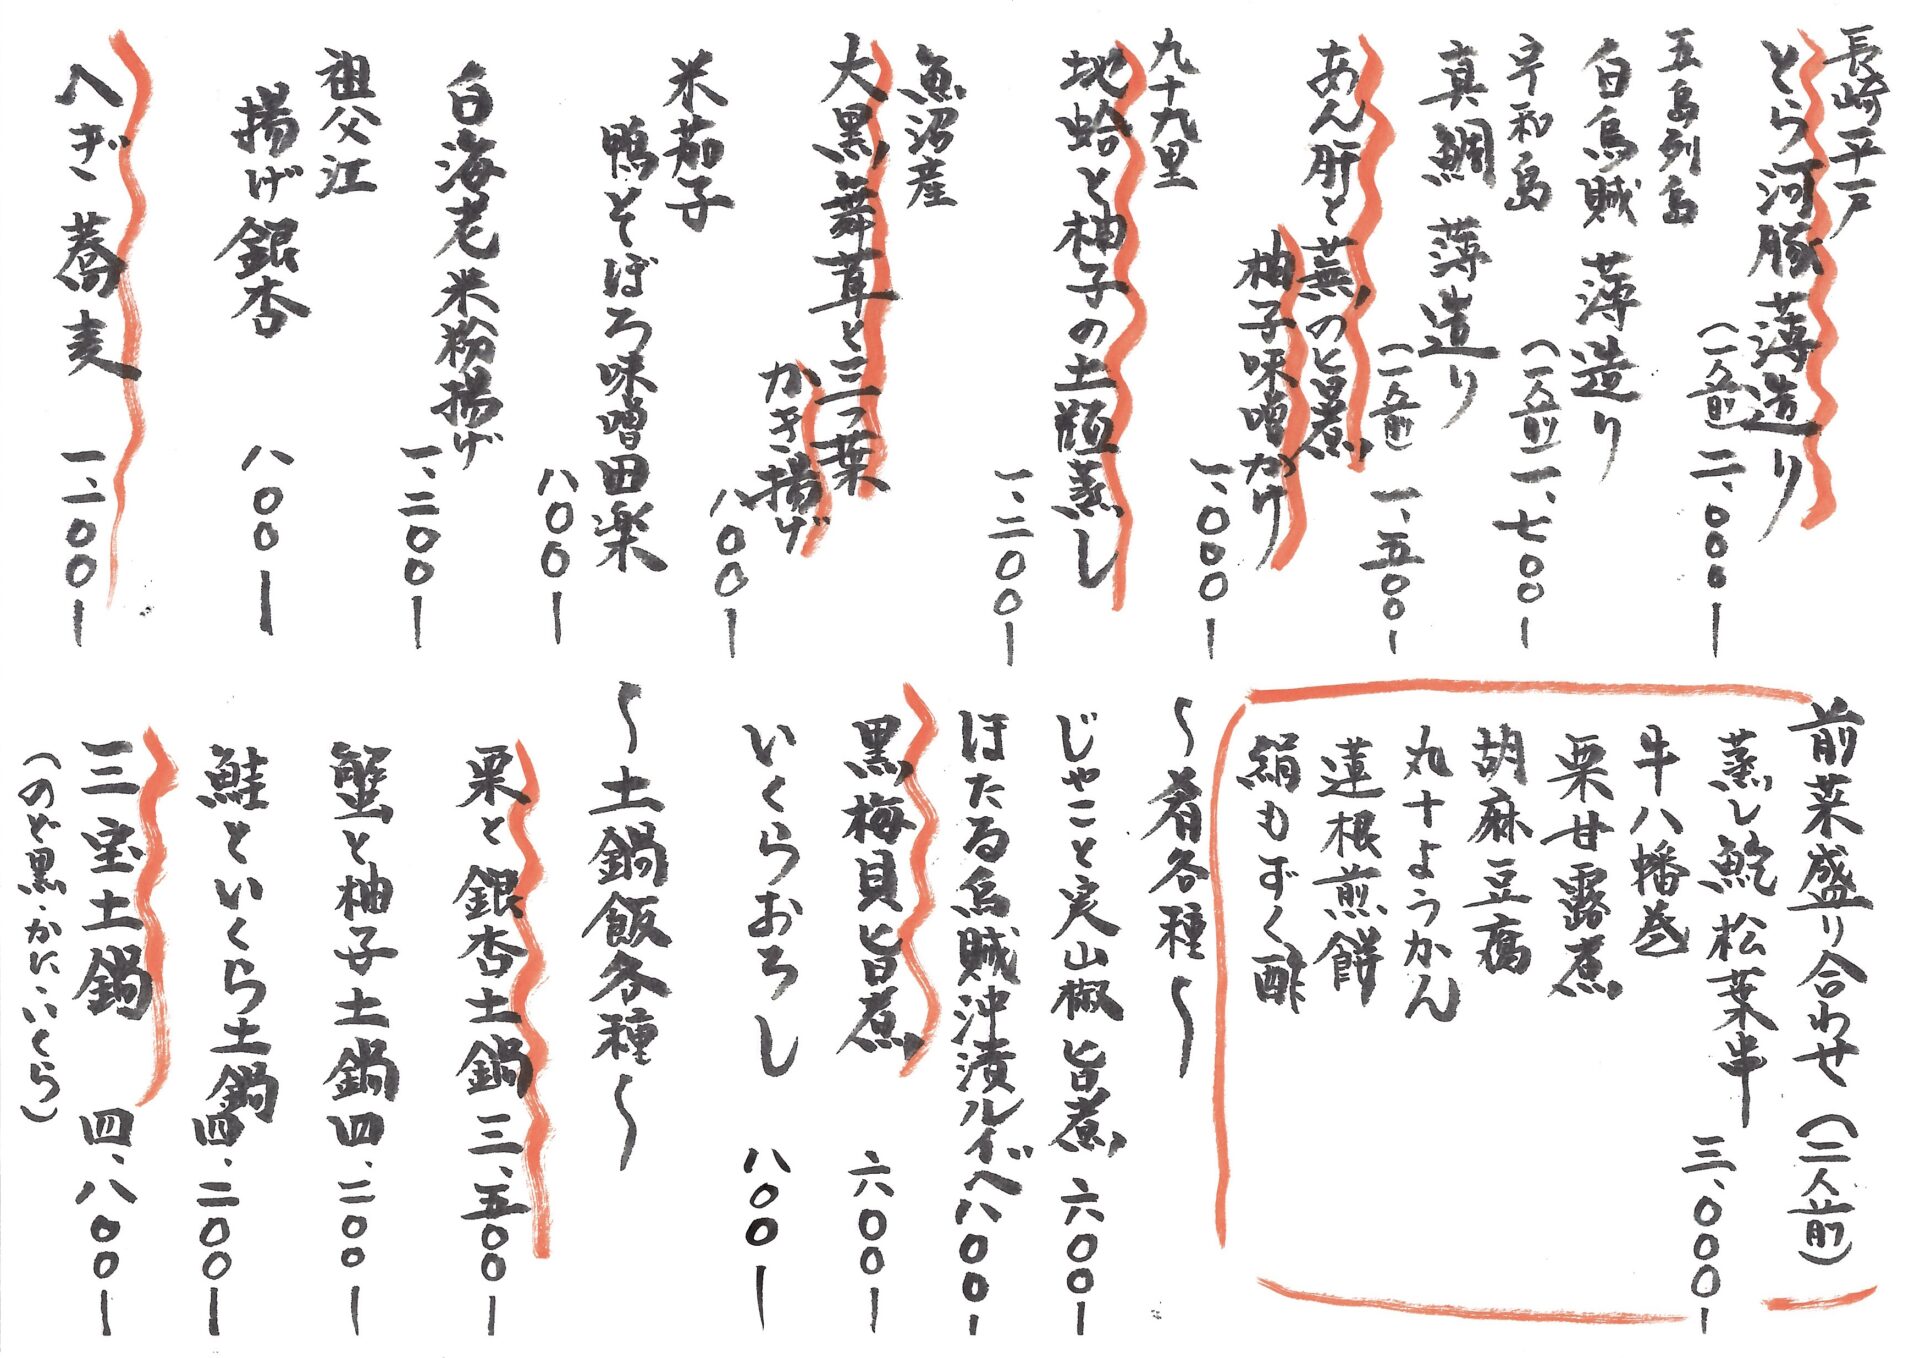 長崎平戸
とら河豚 薄造り
(一人前) 二、〇〇〇ー
五島列島
白烏賊 薄造り
(一人前) 一、七〇〇ー
宇和島
真鯛 薄造り
(一人前) 一、五〇〇ー
あん肝と蕪の旨煮
柚子味噌かけ
一、〇〇〇ー
九十九里
地蛤と柚子の土瓶蒸し
一、二〇〇ー
魚沼産
大黒舞茸と三つ葉
かき揚げ
八〇〇ー
米茄子
鴨そぼろ味噌田楽
八〇〇ー
白海老米粉揚げ
一、二〇〇ー
祖父江
揚げ銀杏
八〇〇ー
へぎ蕎麦
一、二〇〇ー
前菜盛り合わせ(二人前)
蒸し鮑松葉串
三、〇〇〇ー
牛八幡巻
栗甘露煮
胡麻豆腐
丸十ようかん
蓮根煎餅
絹もずく酢
〜肴各種〜
じゃこと実山椒旨煮 六〇〇ー
ほたる烏賊沖漬ルイベ 八〇〇ー
黒梅貝旨煮 六〇〇ー
いくらおろし 八〇〇ー
〜土鍋飯各種〜
栗と銀杏土鍋 三、五〇〇ー
蟹と柚子土鍋 四、二〇〇ー
鮭といくら土鍋 四、二〇〇ー
三宝土鍋 四、八〇〇ー
(のど黒・かに・いくら)